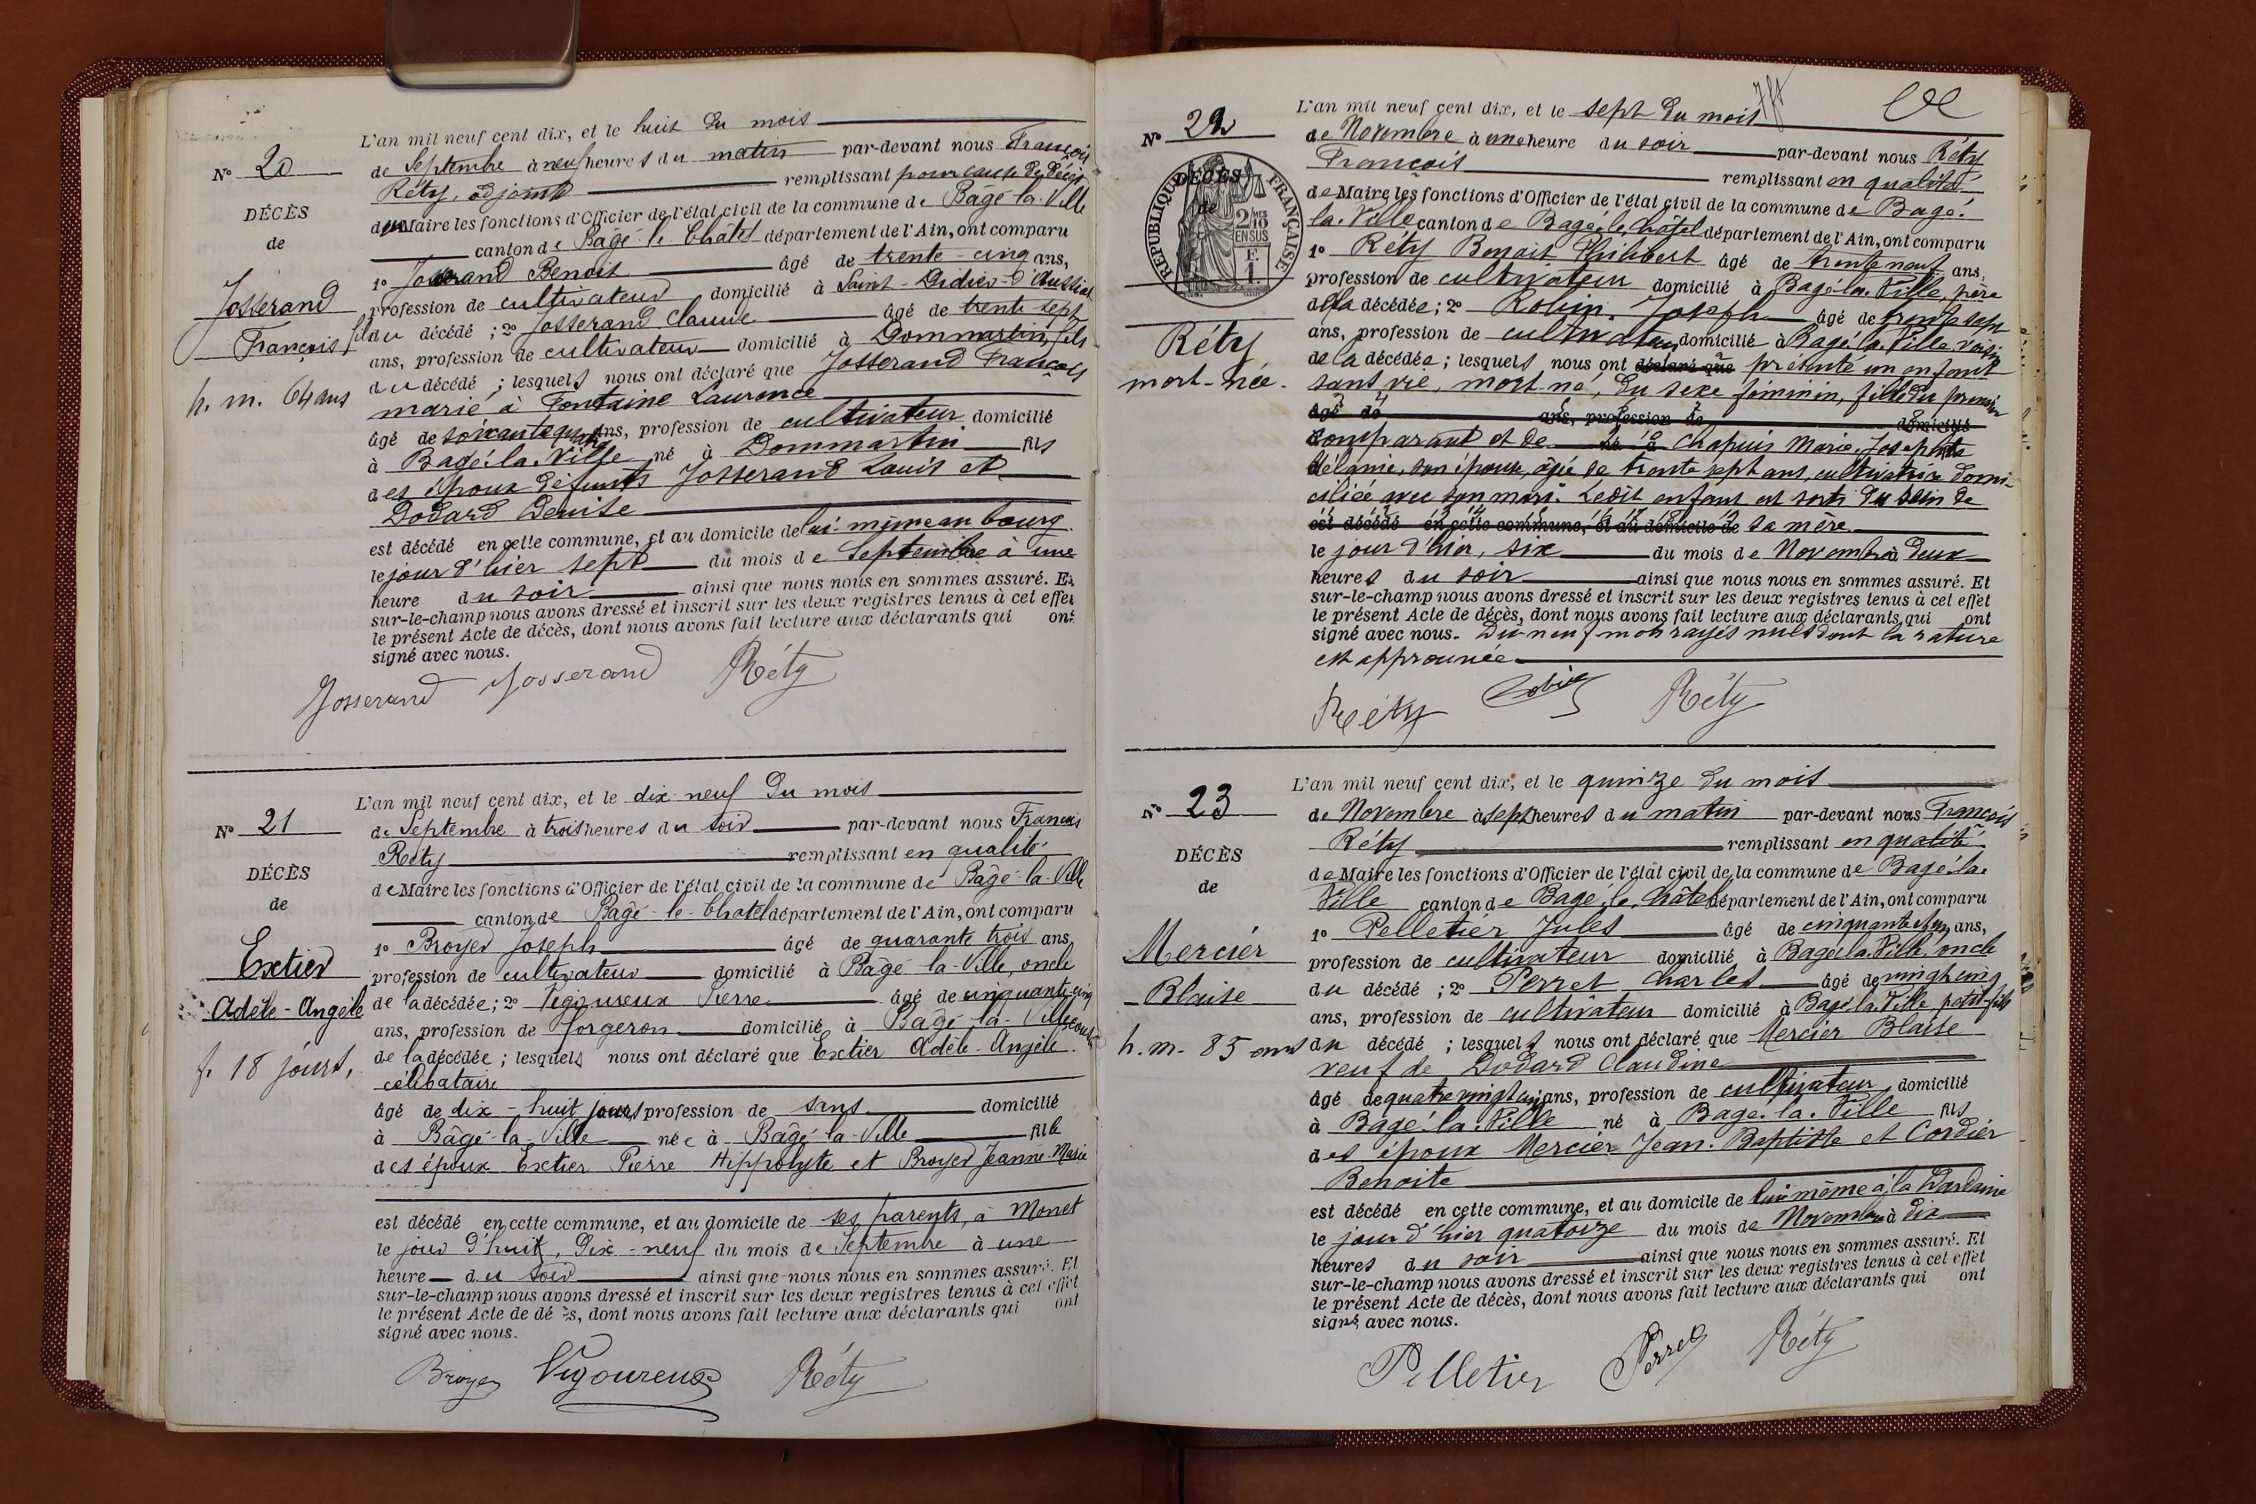 L'an mil neuf cent dix, et le huit du mois
No 20
de Septembre à neuf heures du matin par-devant nous François
Réty, adjoint remplissant pour cause de décès
DÉCÈS
du Maire les fonctions d'Officier de l'état civil de la commune de Bâgé-la-Ville
de
canton de Bâgé-le-Châtel département de l'Ain, ont comparu
1o Josserand Benoit âgé de trente-cinq ans,
Josserand
profession de cultivateur domicilié à Saint-Didier-d'Aussiat
François
fils du décédé ; 2o Josserand Claude âgé de trente-sept
ans, profession de cultivateur domicilié à Dommartin, fils
h. m. 64 ans
du décédé ; lesquels nous ont déclaré que Josserand François
marié à Fontaine Laurence
âgé de soixante quatre ans, profession de cultivateur domicilié
à Bagé-la-Ville né à Dommartin fils
des époux défunts Josserand Louis et
Dodard Denise
est décédé en cette commune, et au domicile de lui-même au bourg
le jour d'hier sept du mois de Septembre à une
heure du soir ainsi que nous nous en sommes assuré. Et
sur-le-champ nous avons dressé et inscrit sur les deux registres tenus à cet effet
le présent Acte de décès, dont nous avons fait lecture aux déclarants qui ont
signé avec nous.
Josserand Josserand Réty
L'an mil neuf cent dix, et le dix-neuf du mois
No 21
de Septembre à trois heures du soir par-devant nous François
Réty remplissant en qualité
DÉCÈS
de Maire les fonctions d'Officier de l'état civil de la commune de Bâgé-la-Ville
de
canton de Bâgé-le-Châtel département de l'Ain, ont comparu
Extier
1o Broyer Joseph âgé de quarante trois ans,
profession de cultivateur domicilié à Bâgé-la-Ville, oncle
Adèle-Angèle
de la décédée ; 2o Vigoureux Pierre âgé de cinquante-cinq
ans, profession de forgeron domicilié à Bâgé-la-Ville
f. 18 jours,
de la décédée ; lesquels nous ont déclaré que Extier Adèle-Angèle
célibataire
âgé de dix-huit jours, profession de sans domicilié
à Bâgé-la-Ville née à Bâgé-la-Ville fille
des époux Extier Pierre Hippolyte et Broyer Jeanne-Marie
est décédé en cette commune, et au domicile de ses parents, à Monet
le jour d'huit, dix-neuf du mois de Septembre à une
heure du soir ainsi que nous nous en sommes assuré. Et
sur-le-champ nous avons dressé et inscrit sur les deux registres tenus à cet effet
le présent Acte de décès, dont nous avons fait lecture aux déclarants qui ont
signé avec nous.
Broyer Vigoureux Réty
L'an mil neuf cent dix, et le sept du mois
No 22
de Novembre à une heure du soir par-devant nous Réty
François remplissant en qualité
DÉCÈS
de
RÉPUBLIQUE FRANÇAISE
2/10
EN SUS
de Maire les fonctions d'Officier de l'état civil de la commune de Bagé-
la-Ville canton de Bagé-le-Châtel département de l'Ain, ont comparu
1o Réty Benoit Philibert âgé de trente neuf ans,
profession de cultivateur domicilié à Bagé-la-Ville, père
de la décédée ; 2o Robin Joseph âgé de trente sept
Réty
ans, profession de cultivateur domicilié à Bagé-la-Ville, voisin
mort-née.
de la décédée ; lesquels nous ont déclaré que présenté un enfant
sans vie, mort-né, du sexe féminin, fille du premier
âgé de ans, profession de domicilié
comparant et de Chapuis Marie Josephte
Mélanie, son épouse, âgée de trente sept ans, cultivatrice domi-
ciliée avec son mari. Ledit enfant est sorti du sein de
est décédé en cette commune, et au domicile de sa mère
le jour d'hier, six du mois de Novembre à deux
heures du soir ainsi que nous nous en sommes assuré. Et
sur-le-champ nous avons dressé et inscrit sur les deux registres tenus à cet effet
le présent Acte de décès, dont nous avons fait lecture aux déclarants qui ont
signé avec nous. Dix-neuf mots rayés nuls dont la rature
est approuvée
Réty Robin Réty
L'an mil neuf cent dix, et le quinze du mois
No 23
de Novembre à sept heures du matin par-devant nous François
Réty remplissant en qualité
DÉCÈS
de Maire les fonctions d'Officier de l'état civil de la commune de Bagé-la-
de
Ville canton de Bagé-le-Châtel département de l'Ain, ont comparu
1o Pelletier Jules âgé de cinquante et un ans,
Mercier
profession de cultivateur domicilié à Bagé-la-Ville, oncle
Blaise
du décédé ; 2o Perret Charles âgé de vingt cinq
ans, profession de cultivateur domicilié à Bagé-la-Ville petit-fils
h. m. 85 ans
du décédé ; lesquels nous ont déclaré que Mercier Blaise
veuf de Dodard Claudine
âgé de quatre vingt cinq ans, profession de cultivateur domicilié
à Bagé-la-Ville né à Bagé-la-Ville fils
des époux Mercier Jean-Baptiste et Cordier
Benoite
est décédé en cette commune, et au domicile de lui-même à la
le jour d'hier quatorze du mois de Novembre à dix
heures du soir ainsi que nous nous en sommes assuré. Et
sur-le-champ nous avons dressé et inscrit sur les deux registres tenus à cet effet
le présent Acte de décès, dont nous avons fait lecture aux déclarants qui ont
signé avec nous.
Pelletier Perret Réty